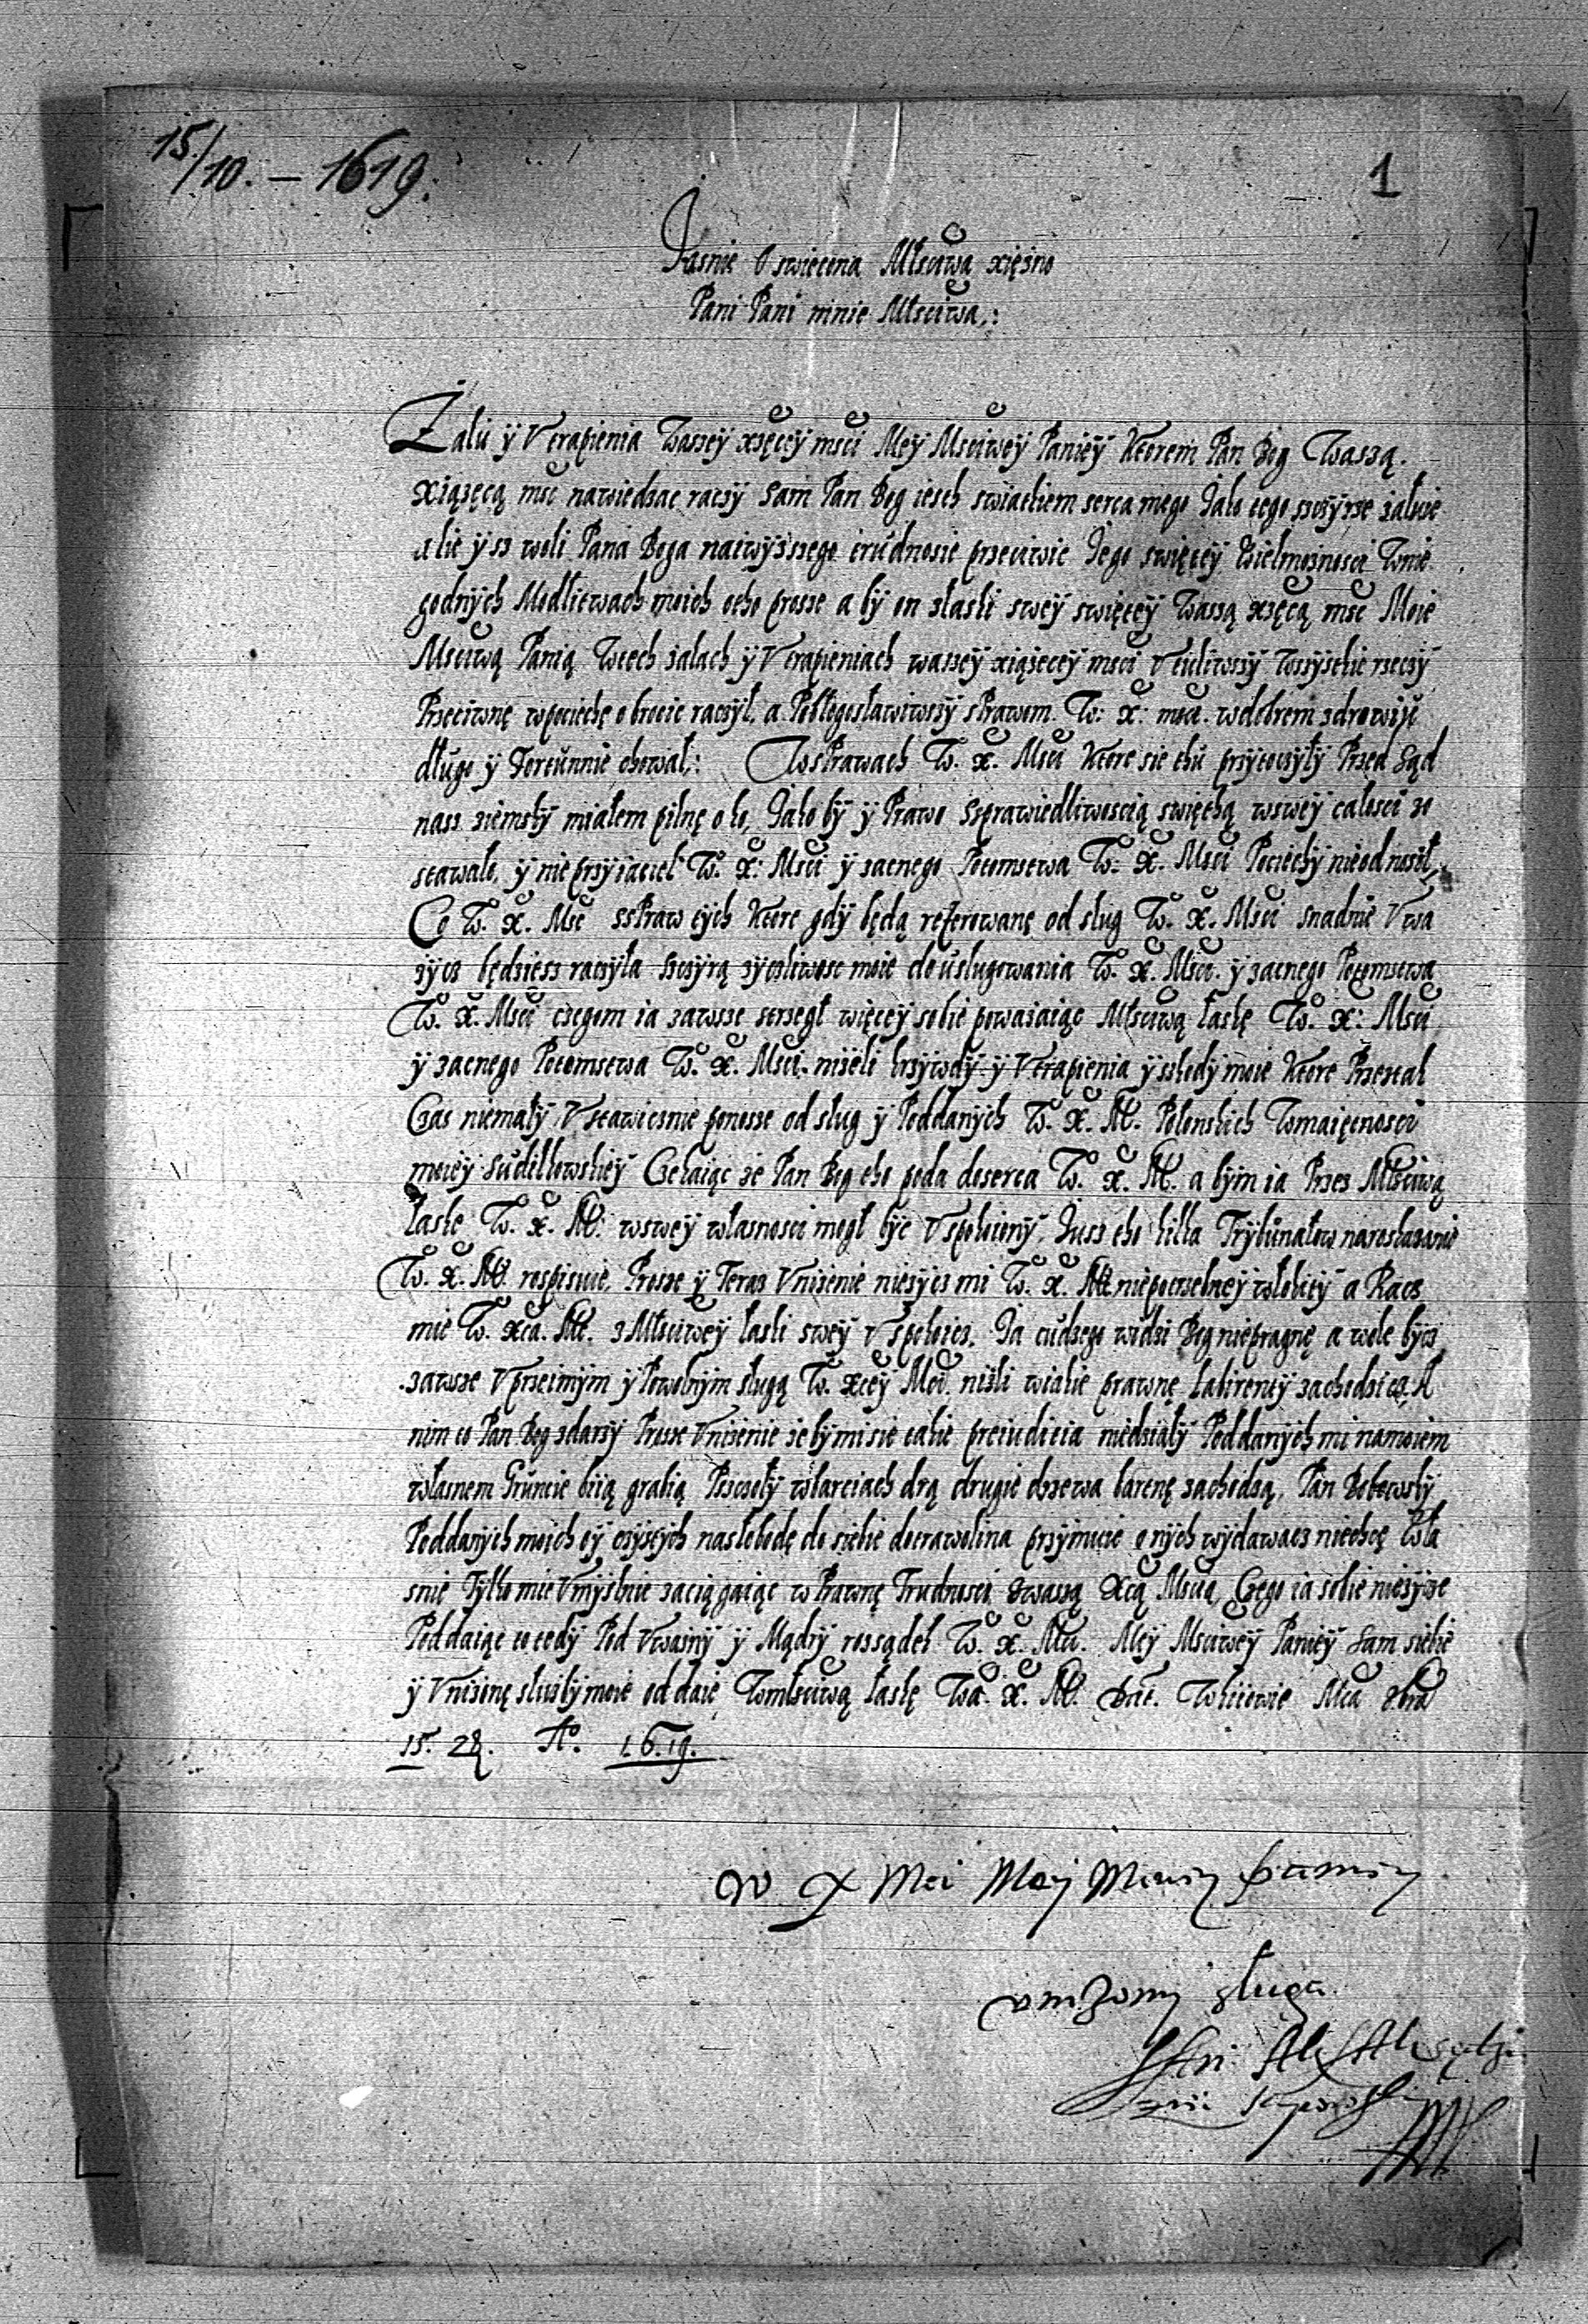 15/10. – 1619.
1
Jasnie Oswięcona Młsciwa xiężno
Pani Pani mnie Młsciwa,:
Żalu ÿ Vtrapienia Waszeÿ xżęceÿ msci Meÿ Msciweÿ Panieÿ Ktorem Pan Bog Waszą
xiążęcą msc nawiedzac raczÿ Sam Pan Bog iesth swiatkiem serca mego Jako tego szczÿrze żałuie
alie ÿsz woli Pana Boga naiwÿzszego trudnosie przeciwie Jego swięteÿ Wielmożnosci Wnie
godnÿch Modlitwach moich otho prosze a bÿ on złaski sweÿ swięteÿ Waszą xżęcą msc Moie
Msciwą Panią Wtech żalach ÿ Vtrapieniach waszeÿ xiążeceÿ msci Vtuliwszÿ Wszÿstkie rzeczÿ
Przeciwnę wpociechę obrocic raczÿł, a Pobłogosławiwszÿ sprawom W: X: msci. wdobrem zdrowiÿ
długo ÿ Fortunnie chował,: Wsprawach W. X. Msci Ktore sie thu prÿtoczÿłÿ Przed Sąd
nasz ziemskÿ miałem pilnę oko, Jako bÿ ÿ Prawo Ssprawiedliwoscią swięthą wsweÿ całosci zo
stawało, ÿ nieprzÿiaciel W. X: Msci ÿ zacnego Potomstwa W. X. Msci Pociechÿ nieodnosił,
Co W. X. Msc Sspraw tÿch Ktore gdÿ będą referowanę od slug W. X. Msci Snadnie Vwa
żÿcz będziesz raczÿła Szczÿrą zÿczliwosc moie do usługowania W. X. Msci. ÿ zacnego Potomstwa
W. X. Msci czegom ia zawsze strzegł więceÿ sobie poważaiąc Młsciwą łaskę W. X: Msci
ÿ zacnego Potomstwa W. X. Msci. niżeli krzÿwdÿ ÿ Vtrapienia ÿ szkodÿ moie Ktore Przeztak
Czas niemałÿ Vstawicznie ponosze od sług ÿ Poddanÿch W. X. M. Polonskich Wmaiętnosci
moieÿ Sudilkowskieÿ Czekaiąc że Pan Bog tho poda doserca W. X. M. a bÿm ia Przez Młsciwą
łaskę W. X. M: wsweÿ własnosci mogł bÿc Vspokoionÿ, Jusz tho kilka Trÿbunałow narozkazanie
W. X. M. rospisuie, Prosze ÿ Teraz Vniżenie nieżÿcz mi W. X. M niepotrzebneÿ włokitÿ a Racz
mie W. Xca. M. z Młsciweÿ łaski sweÿ Vspokoicz, Ja cudzego widzi Bog niepragnę a wole bÿcz
zawsze Vprzeimÿm ÿ Powolnÿm sługą W. Xceÿ Msci. niżli wiakie prawnę Labirentÿ zachodzicz, A
nim co Pan Bog zdarzÿ Prosze Vniżenie że bÿ mi sie takie preiudicia niedziałÿ Poddanÿch mi namoiem
własnem Gruncie biią grabią Pszczołÿ wbarciach drą drugie drzewa bartnę zachodzą, Pan Bobowskÿ
Poddanÿch moich oÿczÿstÿch nasłobodę do siebie dotrawolina przÿmuie onÿch wÿdawacz niechcę Wła
snie Tÿlko mie Vmÿslnie zaciągaiąc w Prawnę Trudnosci Zwaszą Xcą Mscią, Czego ia sobie nieżÿcze
Poddaiąc to tedÿ Pod Vważnÿ ÿ Mądrÿ rozsądek W. X. Mci. Meÿ Msciweÿ Panieÿ Sam siebie
ÿ Vniżonę służbÿ moie oddaię Wmłsciwą łaskę Wa. X. M. Dat. Wkiiowie Mca 8bra
15. 28. A°. 1619.
W X Mci Mey Mciwey Paniey
vnizony sługa